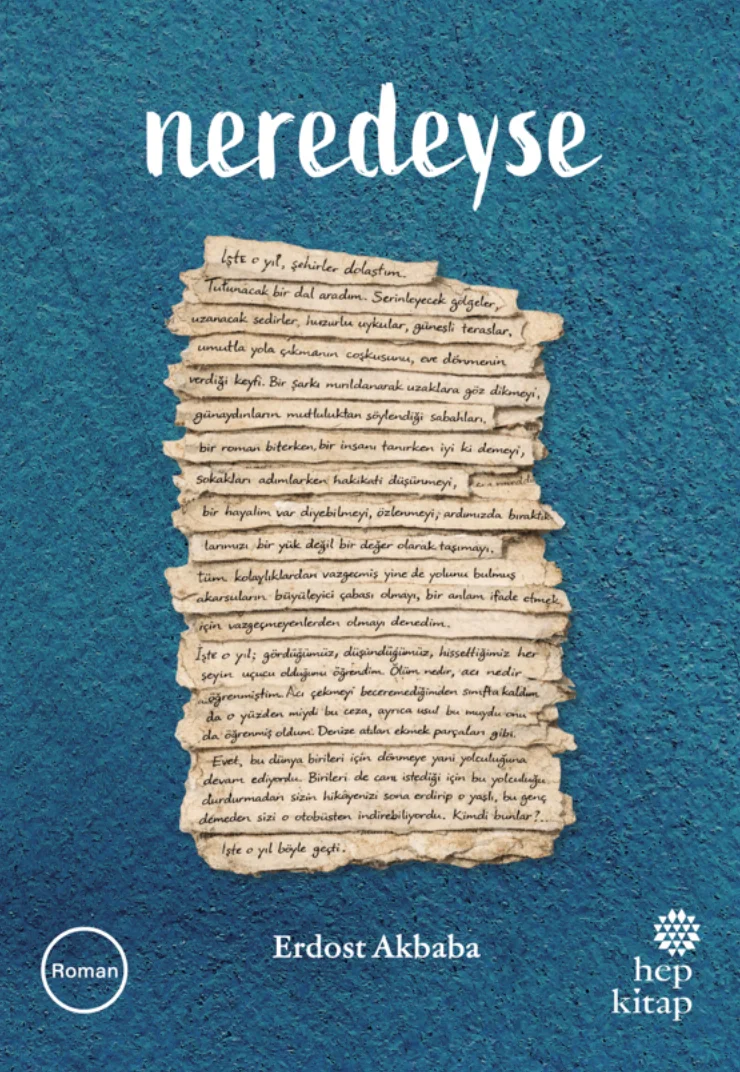 neredeyse
İşte o yıl, şehirler dolaştım.
Tutunacak bir dal aradım. Serinleyecek gölgeler,
uzanacak sedirler, huzurlu uykular, güneşli teraslar,
umutla yola çıkmanın coşkusunu, eve dönmenin
verdiği keyfi. Bir şarkı mırıldanarak uzaklara göz dikmeyi,
günaydınların mutluluktan söylendiği sabahları,
bir roman biterken, bir insanı tanırken iyi ki demeyi,
sokakları adımlarken hakikati düşünmeyi,
bir hayalim var diyebilmeyi, özlenmeyi; ardımızda bıraktık
larımızı bir yük değil bir değer olarak taşımayı,
tüm kolaylıklardan vazgeçmiş yine de yolunu bulmuş
akarsuların büyüleyici çabası olmayı, bir anlam ifade etmek
için vazgeçmeyenlerden olmayı denedim.
İşte o yıl; gördüğümüz, düşündüğümüz, hissettiğimiz her
şeyin uçucu olduğunu öğrendim. Ölüm nedir, acı nedir
öğrenmiştim. Acı çekmeyi beceremediğimden sınıfta kaldım
da o yüzden miydi bu ceza, ayrıca usul bu muydu onu
da öğrenmiş oldum. Denize atılan ekmek parçaları gibi.
Evet, bu dünya birileri için dönmeye yani yolculuğuna
devam ediyordu. Birileri de canı istediği için bu yolculuğu
durdurmadan sizin hikâyenizi sona erdirip o yaşlı, bu genç
demeden sizi o otobüsten indirebiliyordu. Kimdi bunlar?..
İşte o yıl böyle geçti.
Erdost Akbaba
Roman
hep
kitap